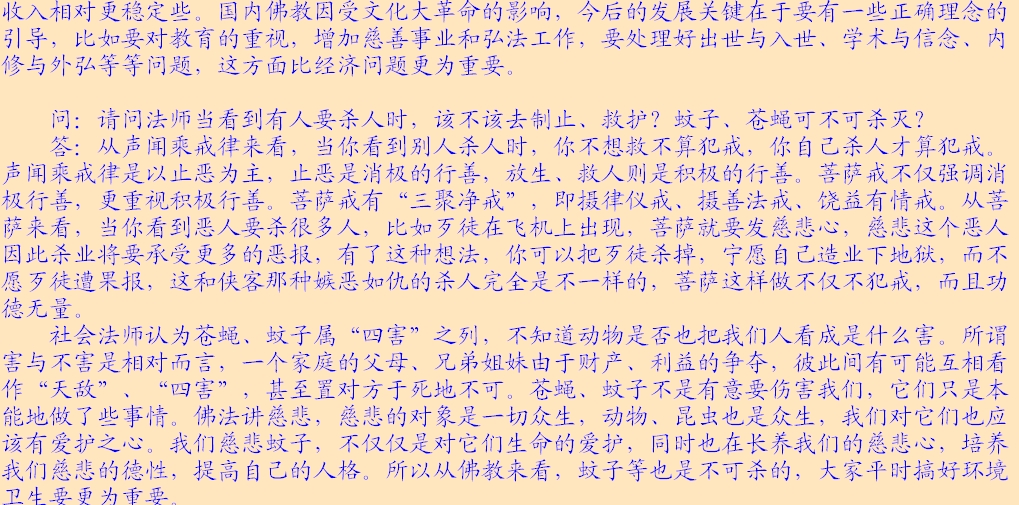 收入相对更稳定些。国内佛教因受文化大革命的影响，今后的发展关键在于要有一些正确理念的
引导，比如要对教育的重视，增加慈善事业和弘法工作，要处理好出世与入世、学术与信念、内
修与外弘等等问题，这方面比经济问题更为重要。
问：请问法师当看到有人要杀人时，该不该去制止、救护？蚊子、苍蝇可不可杀灭？
答：从声闻乘戒律来看，当你看到别人杀人时，你不想救不算犯戒，你自己杀人才算犯戒。
声闻乘戒律是以止恶为主，止恶是消极的行善，放生、救人则是积极的行善。菩萨戒不仅强调消
极行善，更重视积极行善。菩萨戒有“三聚净戒”，即摄律仪戒、摄善法戒、饶益有情戒。从菩
萨来看，当你看到恶人要杀很多人，比如歹徒在飞机上出现，菩萨就要发慈悲心，慈悲这个恶人
因此杀业将要承受更多的恶报，有了这种想法，你可以把歹徒杀掉，宁愿自己造业下地狱，而不
愿歹徒遭果报，这和侠客那种嫉恶如仇的杀人完全是不一样的，菩萨这样做不仅不犯戒，而且功
德无量。
社会法师认为苍蝇、蚊子属“四害”之列，不知道动物是否也把我们人看成是什么害。所谓
害与不害是相对而言，一个家庭的父母、兄弟姐妹由于财产、利益的争夺，彼此间有可能互相看
作“天敌”、“四害”，甚至置对方于死地不可。苍蝇、蚊子不是有意要伤害我们，它们只是本
能地做了些事情。佛法讲慈悲，慈悲的对象是一切众生，动物、昆虫也是众生，我们对它们也应
该有爱护之心。我们慈悲蚊子，不仅仅是对它们生命的爱护，同时也在长养我们的慈悲心，培养
我们慈悲的德性，提高自己的人格。所以从佛教来看，蚊子等也是不可杀的，大家平时搞好环境
卫生要更为重要。